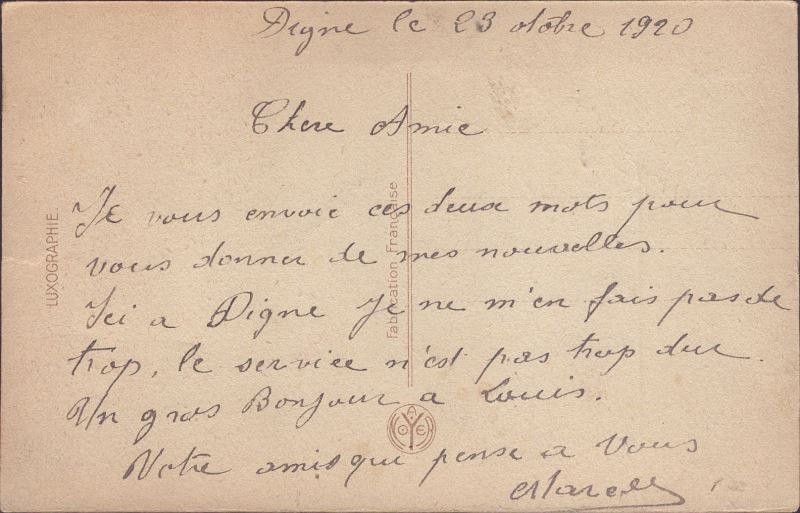 Digne le 23 otobre 1920
Chere Amie
Je vous envoie ces deux mots pour
vous donner de mes nouvelles.
Ici a Digne Je ne m'en fais pas de
trop, le service n'est pas trop dur.
Un gros Bonjour a Louis.
Votre ami qui pense a Vous
Marcel
LUXOGRAPHIE.
Fabrication Française